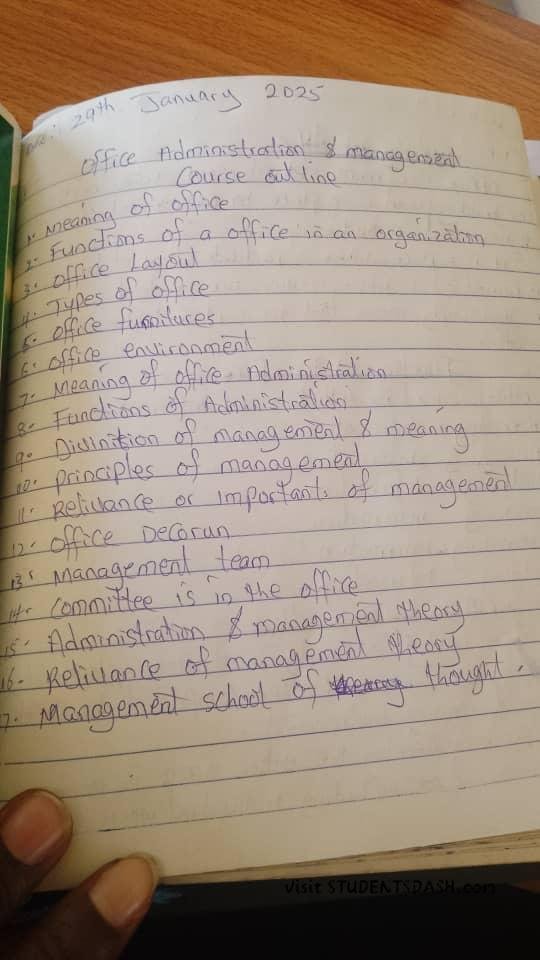 29th January 2025
Office Administration & management
Course outline
1. Meaning of office
2. Functions of a office in an organization
3. Office Layout
4. Types of office
5. Office furnitures
6. Office environment
7. Meaning of office Administration
8. Functions of Administration
9. Divinition of management & meaning
10. Principles of management
11. Relivance or important. of management
12. Office Decorun
13. Management team
14. Committee is in the office
15. Administration & management theory
16. Relivance of management theory
17. Management school of thought.
Visit STUDENTSDASH.com